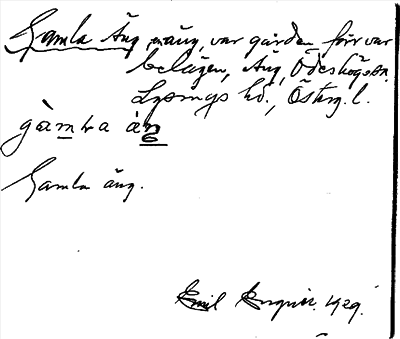 Gamla Äng, mäng, var gården förr var
belägen, Äng, Ödeshögs sn.
Lysings hd., Östrg. l.
gàmba àŋ
Gamla äng.
Emil Enqvist. 1929.